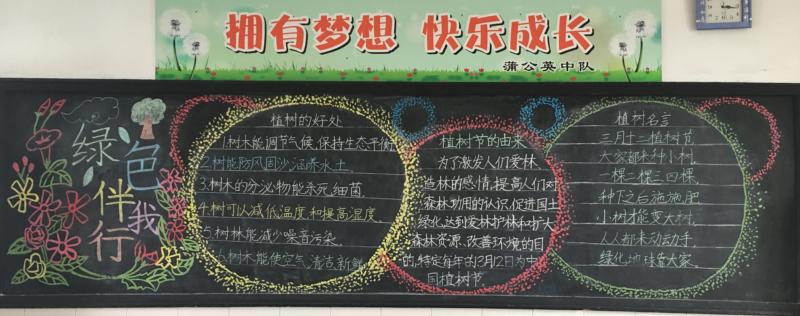 拥有梦想 快乐成长
蒲公英中队
绿色伴我行
植树的好处
1.树木能调节气候,保持生态平衡
2.树能防风固沙,涵养水土
3.树木的分泌物能杀死细菌.
4.树可以减低温度和提高湿度.
5.树林能减少噪音污染.
6.树木能使空气清洁新鲜
植树节的由来
为了激发人们爱林
造林的感情,提高人们对
森林功用的认识,促进国土
绿化,达到爱林护林和扩大
森林资源、改善环境的目
的,特定每年的3月12日为中
国植树节.
植树名言
三月十二植树节
大家都来种小树
一棵二棵三四棵
种下之后施施肥
小树才能变大树
人人都来动动手
绿化地球靠大家.